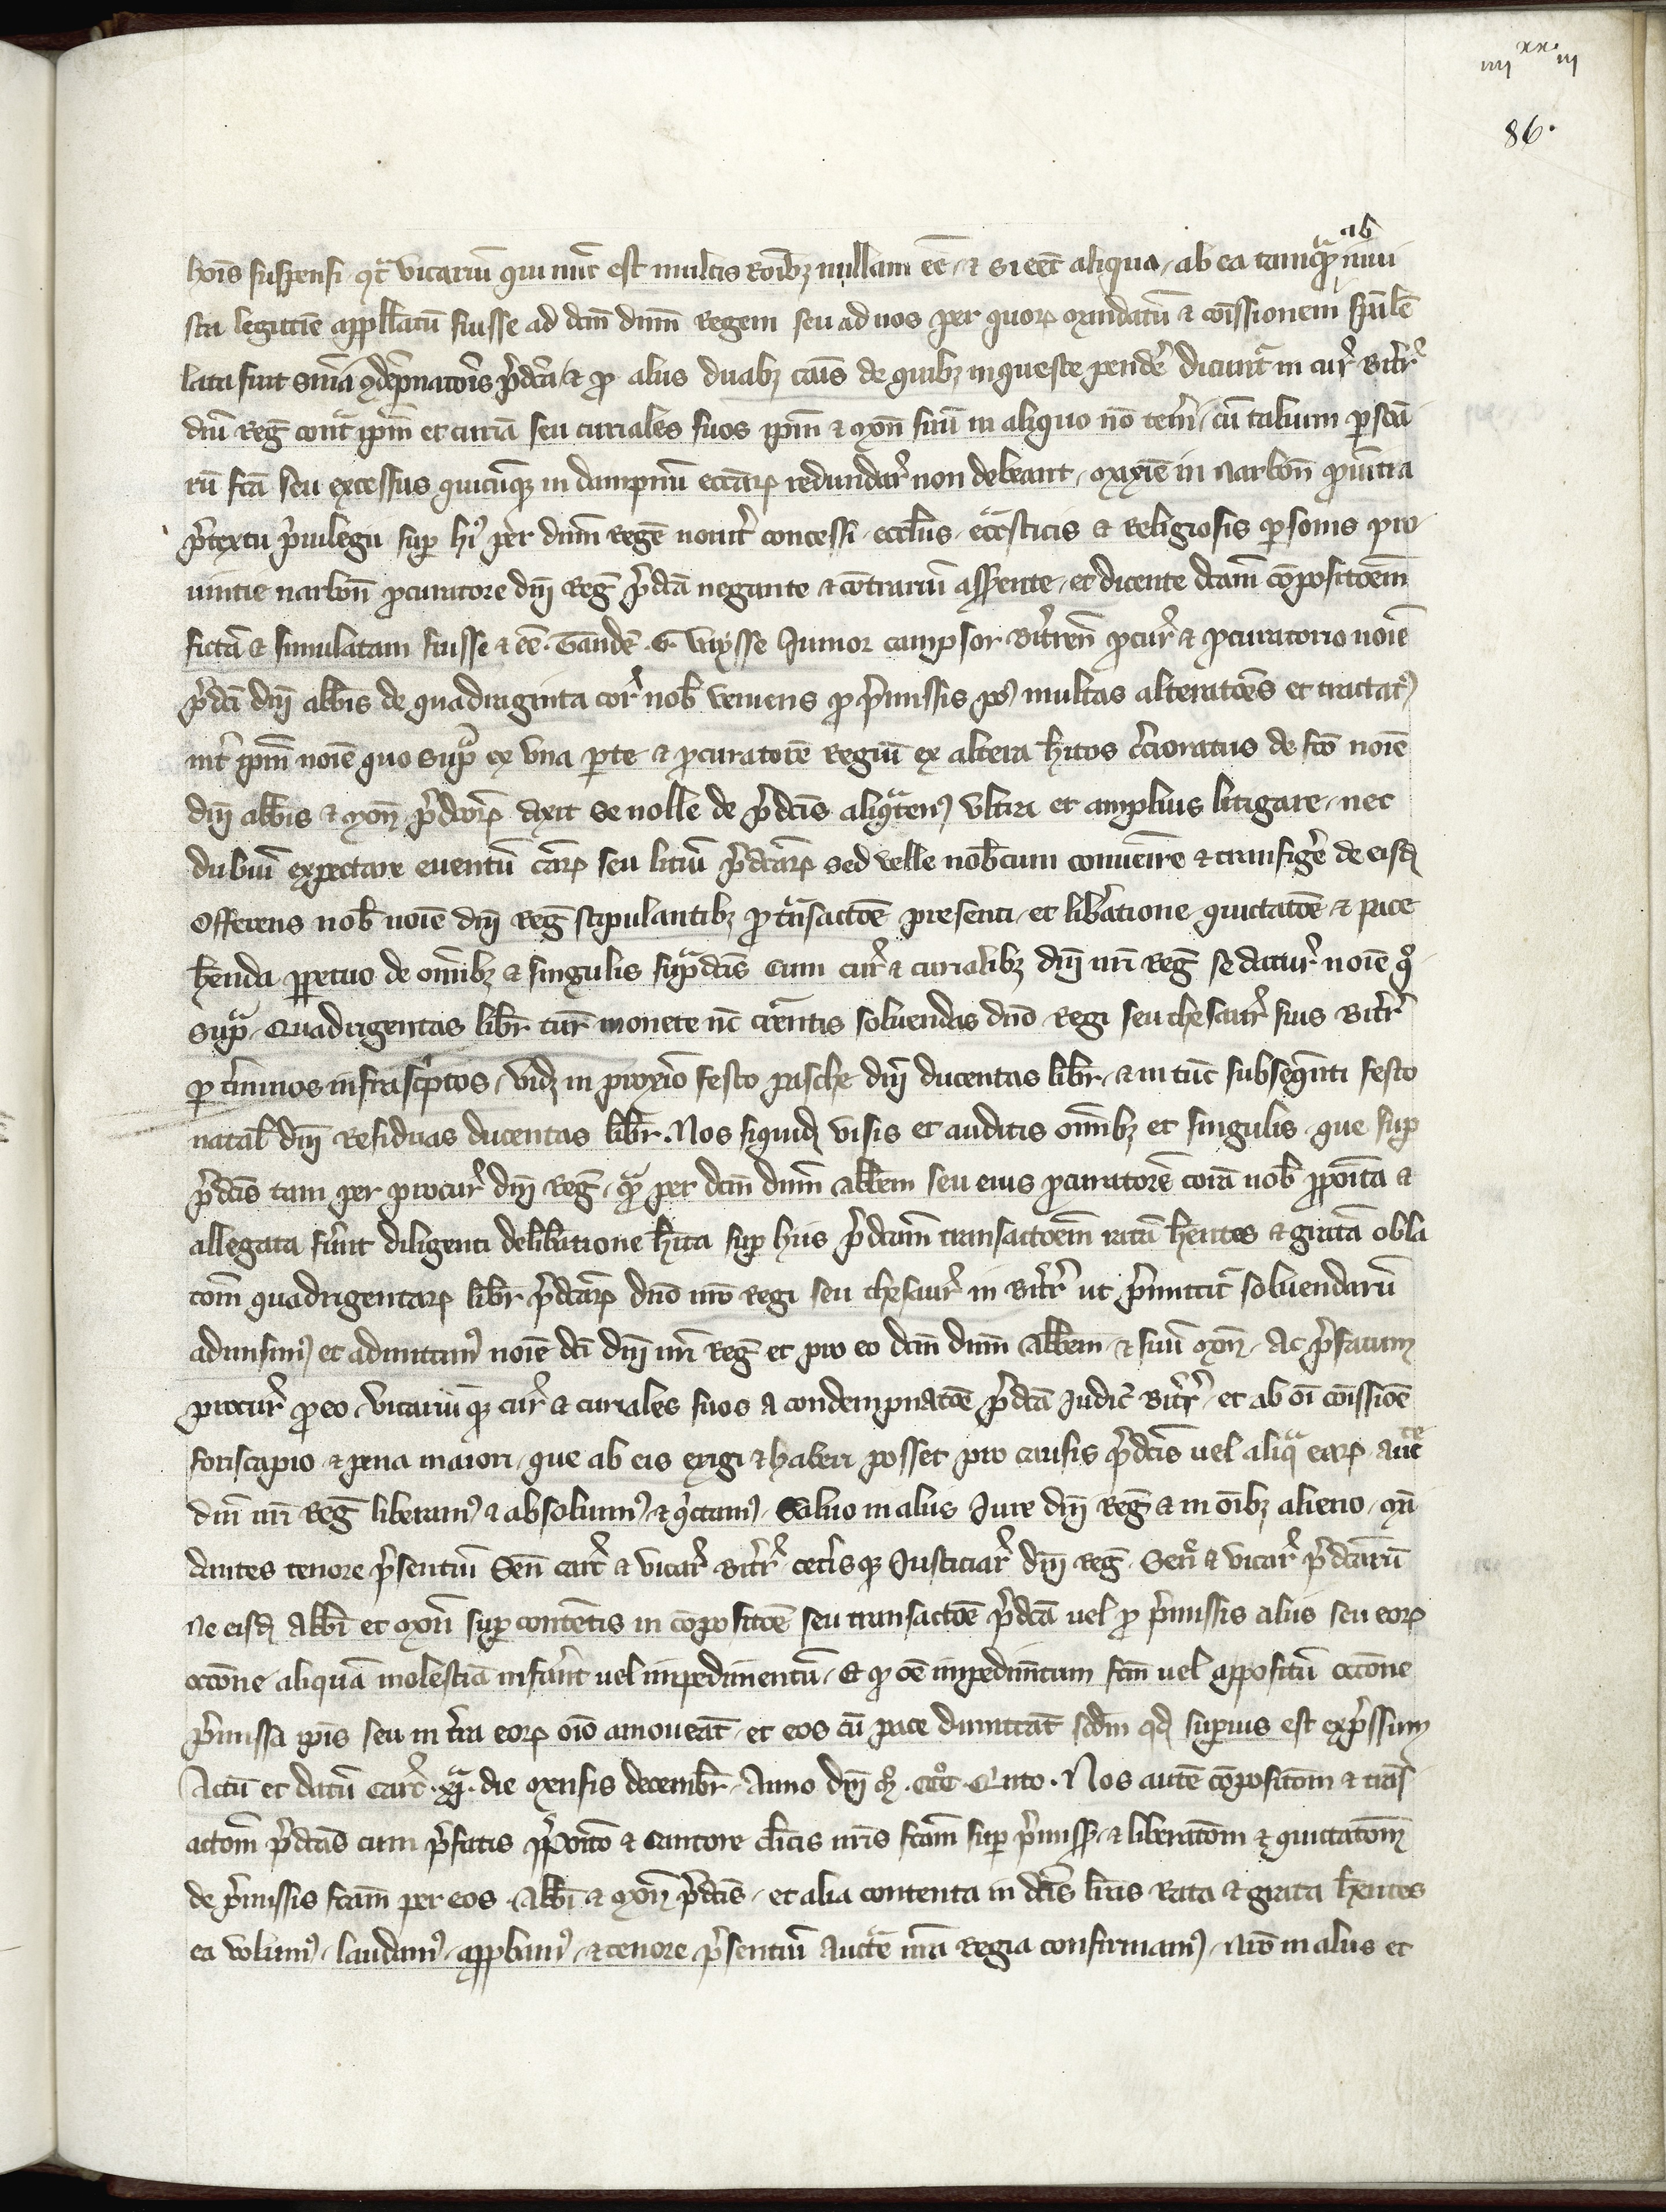 iiii xx. iii
86.
ab
hois suspensi qr̃ vicariũ qui nũc est multis roĩbz nullam eẽ, & si eẽt aliqua, ab ea tamq̃ iniu
sta legitiẽ appll̃atũ fuisse ad dc̃m dnm̃ Regem seu ad uos per quorꝝ mandatũ & cõissionem
lata fuit snĩa p̃dc̃a & pro aliis duabz cãis de quibz inqueste pendẽ dicunt̃ in cur̃ Bitr̃
dnĩ Reg̃ cont̃ ipm̃ et curiã seu curiales suos ipm̃ & mon̄ suũ in aliquo nõ tenẽ, cũ talium ꝑsonã
rũ fc̃a seu excessus quicũqz in dampnũ ecc̃arꝝ redundar̃ non debeant, maxĩe in Narbon̄ ꝓuincia
p̃textu p̃uilegii suꝑ hĩs per dnm̃ Regẽ nouit̃ concessi eccl̃iis, ecc̃asticis & Religiosis ꝑsonis pro
uincie narbon̄ ꝓcuratore dnĩ Reg̃ p̃dc̃a negante & cõtrariũ asserente, et dicente dc̃am cõpositoẽm
fictã & simulatam fuisse & eẽ. Tandẽ G. Iunior campsor Bitrẽn ꝓcur̃ & ꝓcuratorio noĩe
p̃dc̃i dnĩ abb̃is de quadraginta cor̃ nob̃ veniens ꝓ p̃missis pꝰ multas altercatoẽs et tractatꝰ
int̃ ipm̃ noĩe quo sup̃ ex vna ꝑte & ꝓcuratorẽ Regiũ ex altera hĩtos c̃cioratus de fc̃o noĩe
dnĩ abb̃is & mon̄ p̃dc̃orꝝ dixit se nolle de p̃dc̃is aliq̃tenꝰ vltra et amplius litigare, nec
dubiũ expectare euentũ cãrꝝ seu litiũ p̃dc̃arꝝ sed velle nob̃cum conuenire & transigẽ de eisdem
Offerens nob̃ noĩe dnĩ Reg̃ stipulantibz ꝓ tñsactoẽ presenti, et lib̃atione quictatoẽ & pace
hẽnda ꝑpetuo de omĩbz & singulis sup̃dc̃is Cum cur̃ & curialibz dnĩ nrĩ Reg̃ se datur̃ noĩe qͦ
sup̃. Quadrigentas libr̃ tur̃ monete nc̃ cur̃entis soluendas dnõ Regi seu thesaur̃ suis Bitr̃
ꝑ t̃minos infrasc̃ptos, vidz in proxĩo festo pasche dnĩ ducentas libr̃, & in tũc subseq̃nti festo
natal̃ dnĩ Residuas ducentas libr̃. Nos siquidem visis et auditis omĩbz et singulis que suꝑ
p̃dc̃is tam per procur̃ dnĩ Reg̃, q̃ per dc̃m dnm̃ Abb̃em seu eius ꝓcuratorẽ corã nob̃ ꝓpoĩta &
allegata fũnt diligenti delib̃atione hĩta suꝑ hiis p̃dc̃am transactoẽm ratã hẽntes & gratã obla
coẽm quadrigentarꝝ libr̃ p̃dc̃arꝝ dnõ nrõ Regi seu thesaur̃ in Bitr̃ ut p̃mittit̃ soluendarũ
admisimꝰ et admittimꝰ noĩe dc̃i dnĩ nrĩ Reg̃ et pro eo dc̃m dnm̃ Abb̃em & suũ mon̄. Ac p̃fatum
procur̃ ꝓ eo, vicariũqz cur̃ & curiales suos a condempnatoẽ p̃dc̃a Iudic̃ Bitr̃, et ab oĩ cõissioẽ
foriscapio & pena maiori, que ab eis exigi & haberi posset pro causis p̃dc̃is uel aliq̃ earꝝ aucte
dnĩ nrĩ Reg̃ liberamꝰ & absoluimꝰ & q̃ctamꝰ. Saluo in aliis Iure dnĩ Reg̃ & in oĩbz alieno, mã
dantes tenore p̃sentiũ Señ carc̃ & vicar̃ Bitr̃ cetĩsqz Iusticiar̃ dnĩ Reg̃. Senꝰ & vicar̃ p̃dc̃arũ
Ne eisdem Abb̃i et mon̄ suꝑ contentis in cõpositoẽ seu transactoẽ p̃dc̃a uel ꝓ p̃missis aliis seu eorꝝ
occõne, aliquã molestiã inferãt uel impedimentũ. Et qꝫ oẽ impedimẽtum fc̃m uel appositũ occõne
p̃missa ip̃is seu in t̃ra eorꝝ oĩo amoueãt, et eos cũ pace dimittãt sc̃dm qd̃ superius est exp̃ssum
Actũ et datũ Carc̃. xja. die mensis decembr̃. Anno dnĩ Mͦ. CCCͦ. Quĩto. Nos autẽ cõpositoẽm & trãs
actoẽm p̃dc̃as cum p̃fatis p̃poĩto & Cantore clĩcis nrĩs fc̃am suꝑ p̃miss̃, & liberatoẽm & quictatoẽm
de p̃missis fc̃am per eos Abb̃i & mon̄ p̃dc̃is, et alia contenta in dc̃is lrĩs Rata & grata hẽntes
ea volumꝰ, laudamꝰ, approbamꝰ, & tenore p̃sentiũ Aucte nrã Regia confirmamꝰ, nrõ in aliis et